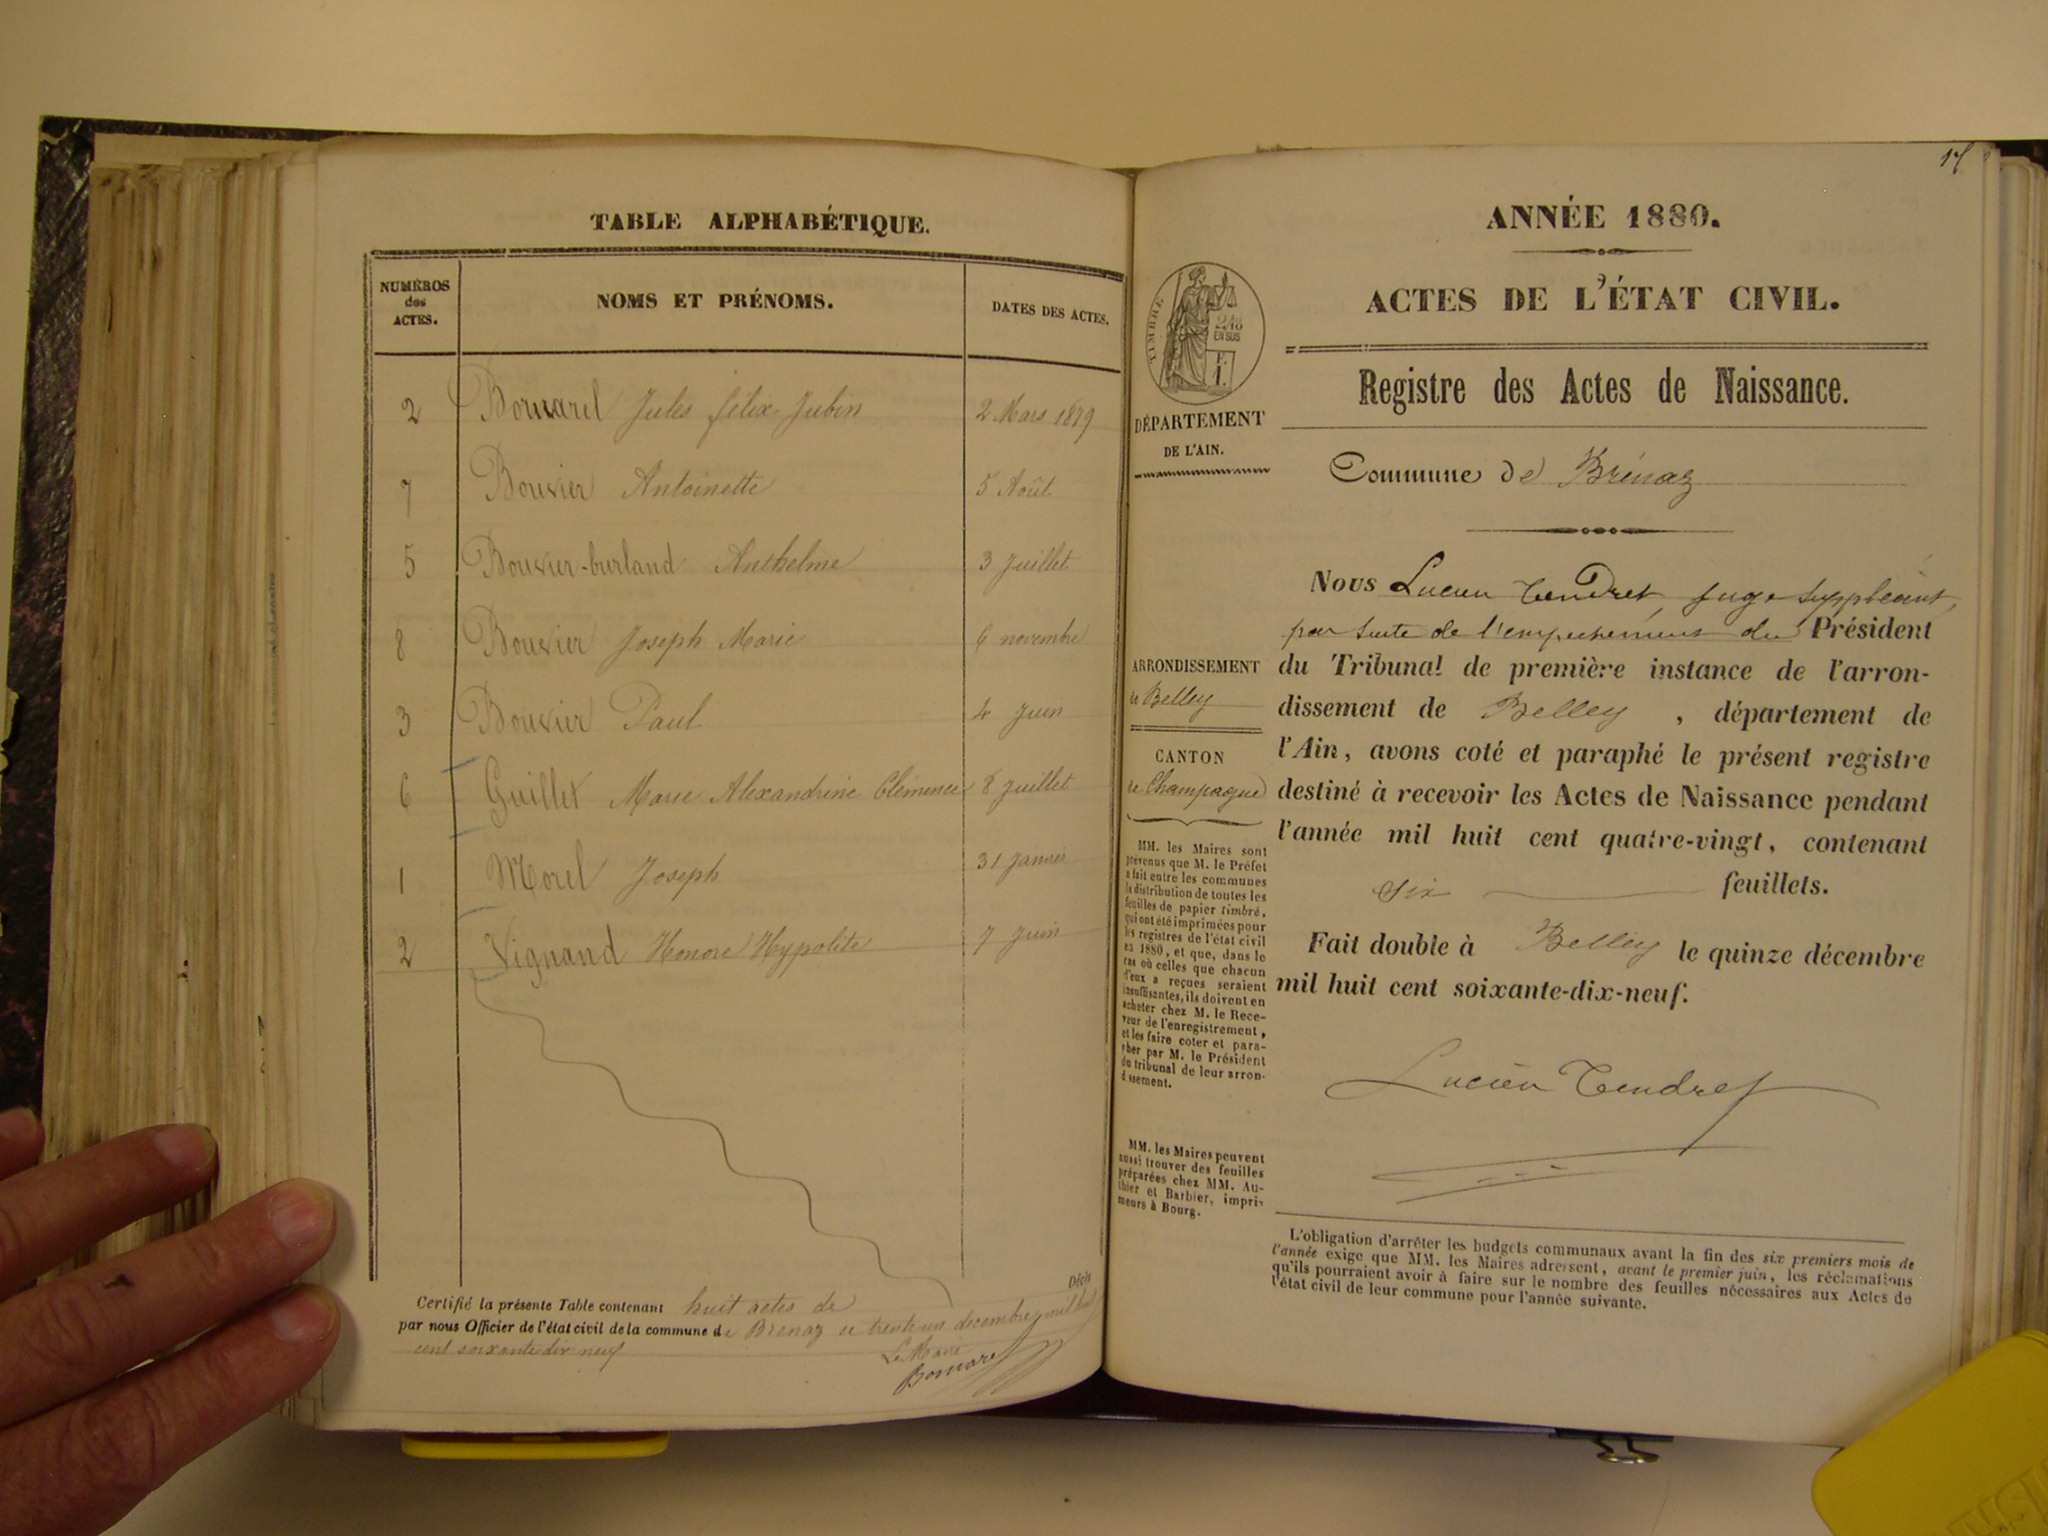 TABLE ALPHABÉTIQUE.
NUMÉROS des ACTES. NOMS ET PRÉNOMS. DATES DES ACTES.
2 Bornarel Jules félix-Jubin 2 Mars 1879
7 Bouvier Antoinette 5 Août
5 Bouvier-burland Anthelme 3 Juillet
8 Bouvier Joseph Marie 6 novembre
3 Bouvier Paul 4 Juin
6 Guillet Marie Alexandrine Clémence 8 Juillet
1 Morel Joseph 31 Janvier
2 Vignand Honoré Hypolite 7 Juin
Décès
Certifié la présente Table contenant huit actes de
par nous Officier de l'état civil de la commune de Brenaz ce trente un decembre mil huit
cent soixante dix neuf
Le Maire
Bornarel
17
ANNÉE 1880.
ACTES DE L'ÉTAT CIVIL.
Registre des Actes de Naissance.
TIMBRE
2/10
EN SUS
DÉPARTEMENT
DE L'AIN.
Commune de Brénaz
Nous Lucien Tendret, juge suppléant,
par suite de l'empechement du Président
du Tribunal de première instance de l'arron-
dissement de Belley, département de
l'Ain, avons coté et paraphé le présent registre
destiné à recevoir les Actes de Naissance pendant
l'année mil huit cent quatre-vingt, contenant
six feuillets.
Fait double à Belley le quinze décembre
mil huit cent soixante-dix-neuf.
Lucien Tendret
ARRONDISSEMENT
de Belley
CANTON
de Champagne
MM. les Maires sont
prévenus que M. le Préfet
a fait entre les communes
la distribution de toutes les
feuilles de papier timbré,
qui ont été imprimées pour
les registres de l'état civil
en 1880, et que, dans le
cas où celles que chacun
d'eux a reçues seraient
insuffisantes, ils doivent en
acheter chez M. le Rece-
veur de l'enregistrement,
et les faire coter et para-
pher par M. le Président
du tribunal de leur arron-
dissement.
MM. les Maires peuvent
aussi trouver des feuilles
préparées chez MM. Au-
thier et Barbier, impri-
meurs à Bourg.
L'obligation d'arrêter les budgets communaux avant la fin des six premiers mois de
l'année exige que MM. les Maires adressent, avant le premier juin, les réclamations
qu'ils pourraient avoir à faire sur le nombre des feuilles nécessaires aux Actes de
l'état civil de leur commune pour l'année suivante.